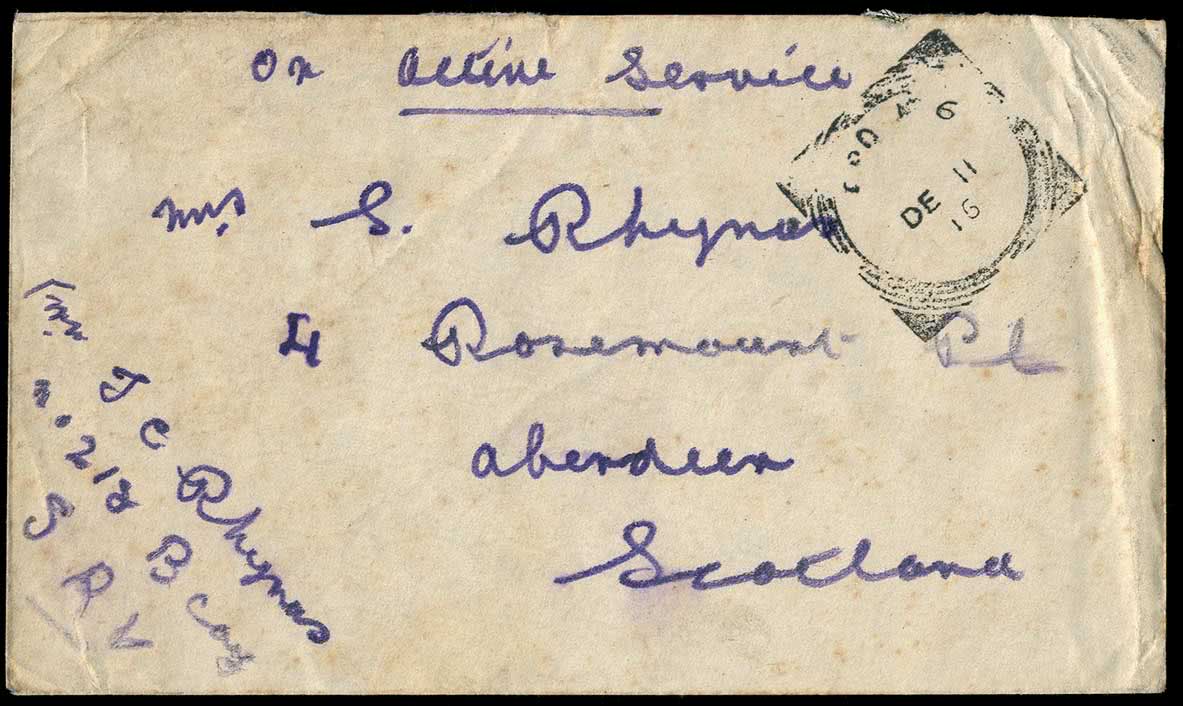 On Active Service
Mrs S. Rhynas
4 Rosemount Pl
Aberdeen
Scotland
6
DE 11
16
J C Rhynas
No. 212 B Coy
S R V